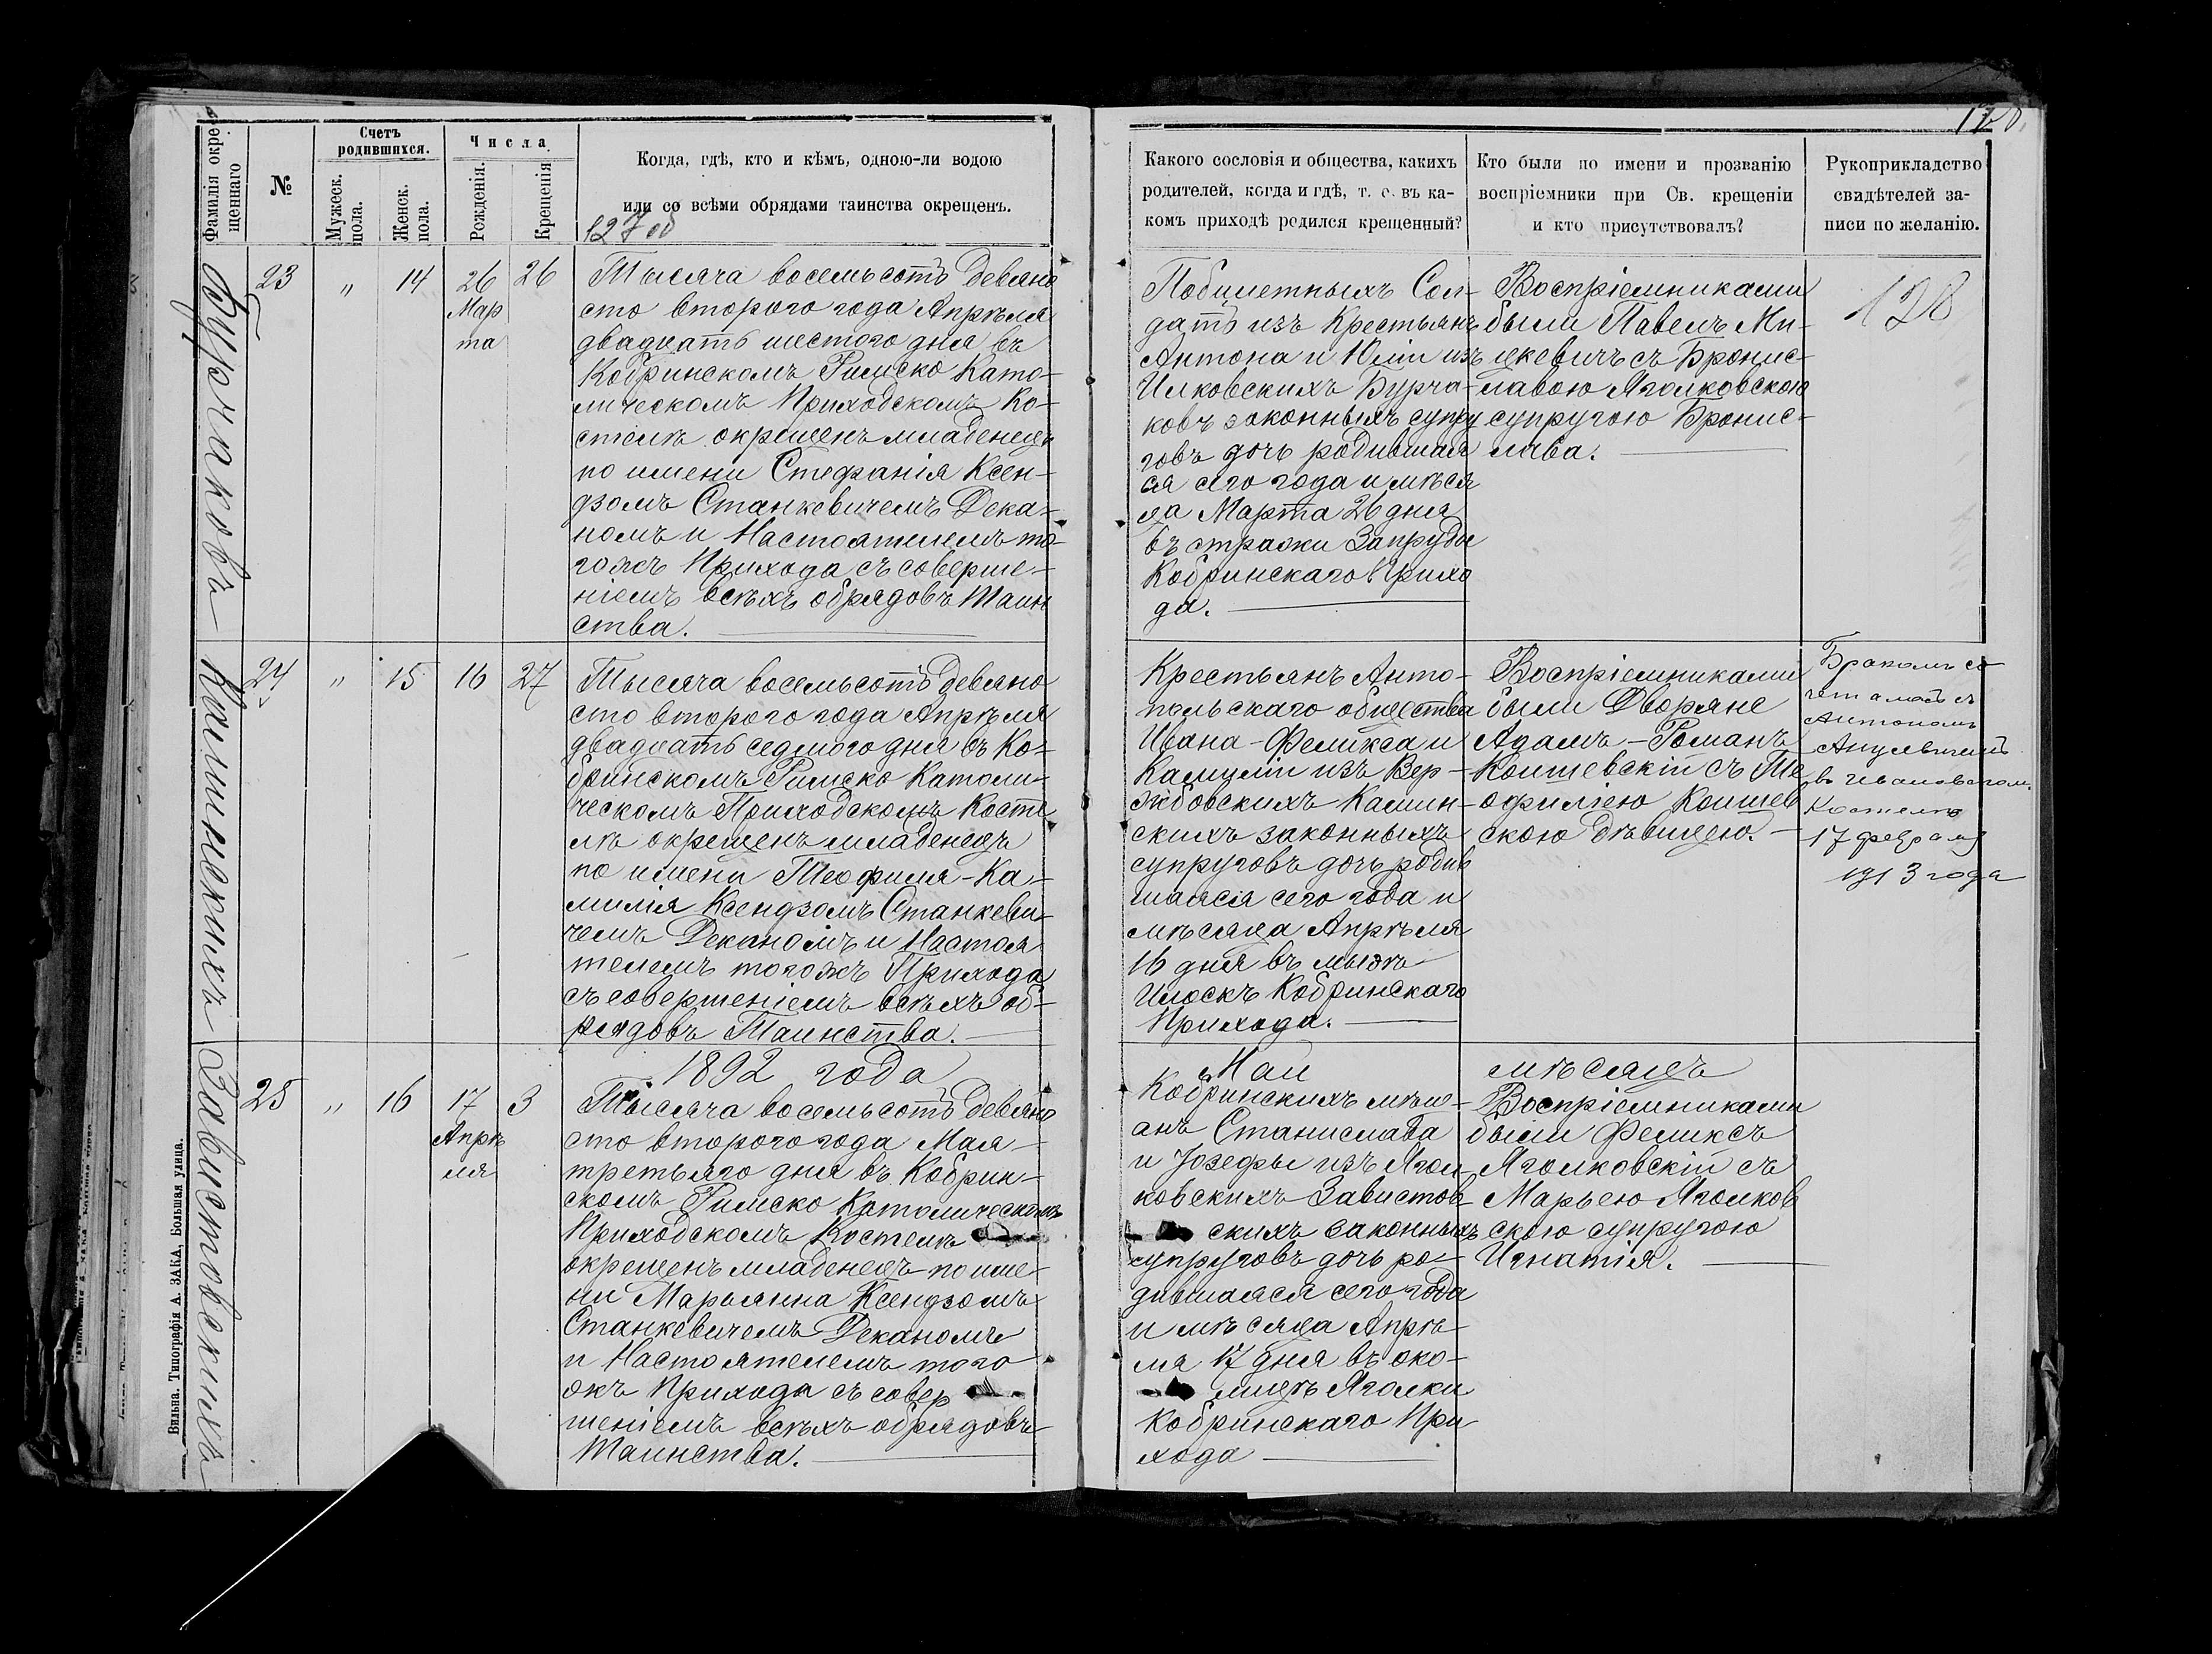 170.
Фамилія окре-
щеннаго
№
Счетъ
родившихся.
Мужеск.
пола.
Женск.
пола.
Числа
Рожденія.
Крещенія
Когда, гдѣ, кто и кѣмъ, одною-ли водою
или со всѣми обрядами таинства окрещенъ.
127 об
Какого сословія и общества, какихъ
родителей, когда и гдѣ, т. е. въ ка-
комъ приходѣ родился крещенный?
Кто были по имени и прозванію
воспріемники при Св. крещеніи
и кто присутствовалъ?
Рукоприкладство
свидѣтелей за-
писи по желанію.
Бурчаковъ
23
"
14
26
Мар
та
26
Тысяча восемьсотъ девяно
сто второго года Апрѣля
двадцать шестого дня въ
Кобринскомъ Римско Като-
лическомъ Приходскомъ Ко-
стелѣ окрещенъ младенецъ
по имени Стефанія Ксен-
дзомъ Станкевичемъ Дека-
номъ и Настоятелемъ то-
гожъ Прихода съ соверше-
ніемъ всѣхъ обрядовъ Таин
ства.
Побилетныхъ Сол-
датъ изъ Крестьянъ
Антона и Юліи изъ
Илковскихъ Бурча-
ковъ законныхъ супру
говъ дочь родившая
ся сего года и мѣся
ца Марта 26 дня
въ стражи Запруды
Кобринскаго Прихо
да.
Воспріемниками
были Павелъ Ми-
цкевичъ съ Бронис-
лавою Яголковскою
супругою Бронис-
лава.
128
Калиинскихъ
24
"
15
16
27
Тысяча восемьсотъ девяно
сто второго года Апрѣля
двадцать седмого дня въ Ко-
бринскомъ Римско Католи-
ческомъ Приходскомъ Косте
лѣ окрещенъ младенецъ
по имени Теофиля-Ка-
милія Ксендзомъ Станкеви-
чемъ Деканомъ и Настоя
телемъ тогожъ Прихода
съ совершеніемъ всѣхъ об-
рядовъ Таинства.
Крестьянъ Анто-
польскаго общества
Ивана-Феликса и
Камиліи изъ Вер-
жбовскихъ Калин-
скихъ законныхъ
супруговъ дочь родив
шаяся сего года и
мѣсяца Апрѣля
16 дня въ мызѣ
Илоскъ Кобринскаго
Прихода.
Воспріемниками
были Дворяне
Адамъ-Романъ
Коишевскій съ Те
офиліею Коишев
скою дѣвицею.
Бракомъ со
четалась съ
Антономъ
въ Ивановском.
Костелѣ
17 февраля
1913 года
1892 года
Май
мѣсяцъ
Завистовскихъ
25
"
16
17
Апрѣ
ля
3
Тысяча восемьсотъ девяно
сто второго года Мая
третьяго дня въ Кобрин-
скомъ Римско Католическомъ
Приходскомъ Костелѣ
окрещенъ младенецъ по име
ни Марьянна Ксендзомъ
Станкевичемъ Деканомъ
и Настоятелемъ того
жъ Прихода съ совер
шеніемъ всѣхъ обрядовъ
Таинства.
Кобринскихъ мѣщ-
анъ Станислава
и Іозефы изъ Ягол-
ковскихъ Завистов
скихъ законныхъ
супруговъ дочь ро-
дившаяся сего года
и мѣсяца Апрѣ-
ля 17 дня въ око-
лицѣ Яголки
Кобринскаго При
хода
Воспріемниками
были Феликсъ
Яголковскій съ
Марьею Яголков
скою супругою
Игнатія.
Вильна. Типографія А. ЗАКА, Большая улица.